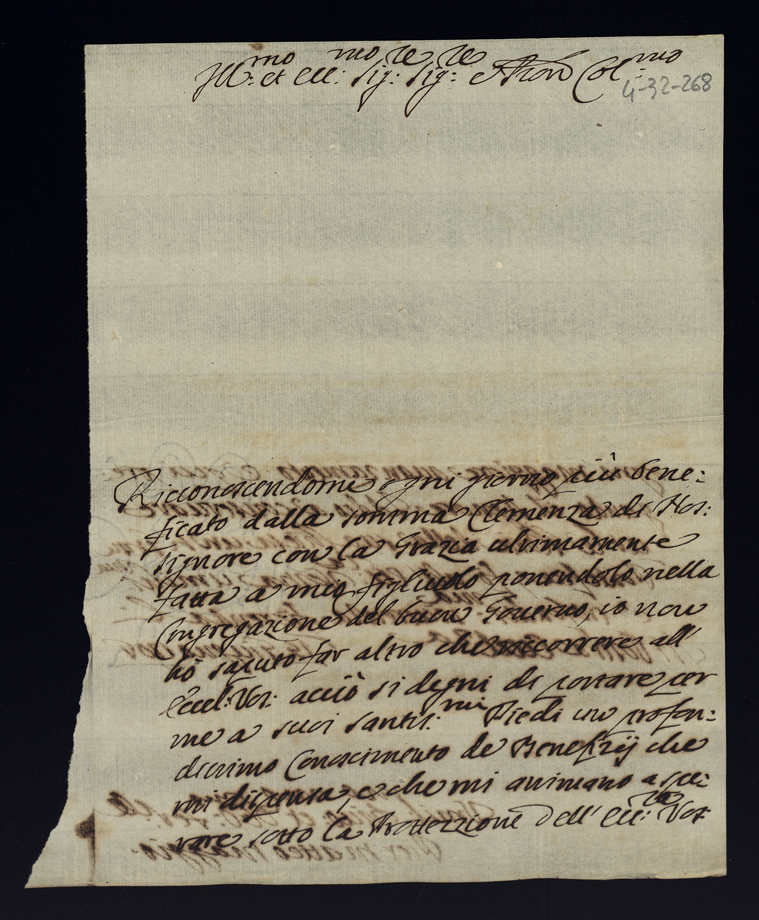 Ill:mo et ecc:mo Sig:re Sig:re Pron Col:mo
4-32-268
Ricconoscendomi ogni giorno più bene:
ficato dalla somma Clemenza di Nos:
signore con la Grazia ultimamente
fatta a mio figliuolo ponendolo nella
Congregazione del buon Governo, io non
hò saputo far altro che riccorrere all'
Eccel: Vos: acciò si degni di portare per
me a suoi santis:mi Piedi un profon:
dissimo Conoscimento de Benefizij che
mi dispensa, e che mi animano a spe:
rare sotto la Prottezzione dell' ecc:za Vos: